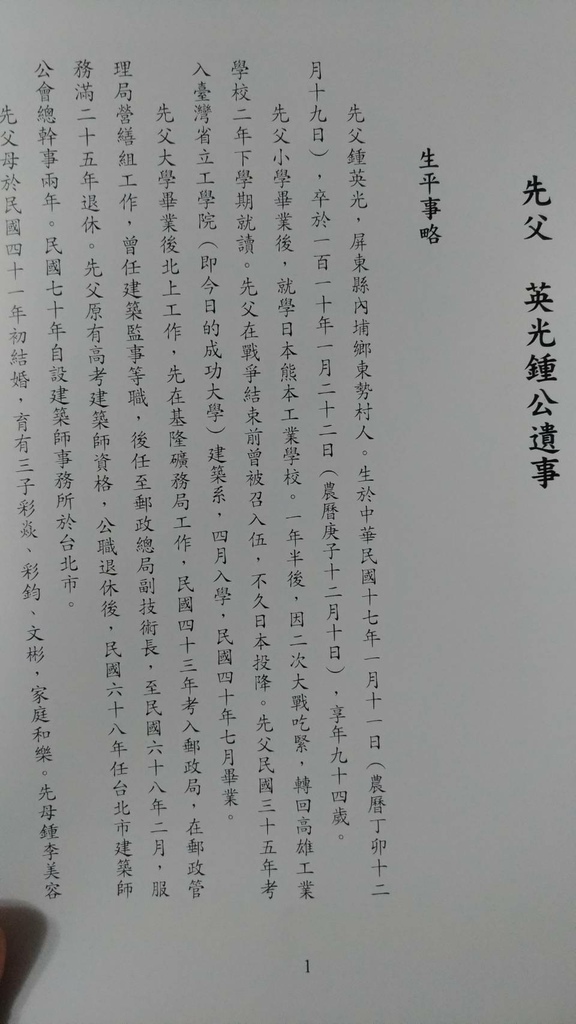 先父　英光鍾公遺事
生平事略
先父鍾英光，屏東縣內埔鄉東勢村人。生於中華民國十七年一月十一日（農曆丁卯十二
月十九日），卒於一百一十年一月二十二日（農曆庚子十二月十日），享年九十四歲。
先父小學畢業後，就學日本熊本工業學校。一年半後，因二次大戰吃緊，轉回高雄工業
學校二年下學期就讀。先父在戰爭結束前曾被召入伍，不久日本投降。先父民國三十五年考
入臺灣省立工學院（即今日的成功大學）建築系，四月入學，民國四十年七月畢業。
先父大學畢業後北上工作，先在基隆礦務局工作，民國四十三年考入郵政局，在郵政管
理局營繕組工作，曾任建築監事等職，後任至郵政總局副技術長，至民國六十八年二月，服
務滿二十五年退休。先父原有高考建築師資格，公職退休後，民國六十八年任台北市建築師
公會總幹事兩年。民國七十年自設建築師事務所於台北市。
先父母於民國四十一年初結婚，育有三子彩焱、彩鈞、文彬，家庭和樂。先母鍾李美容
1